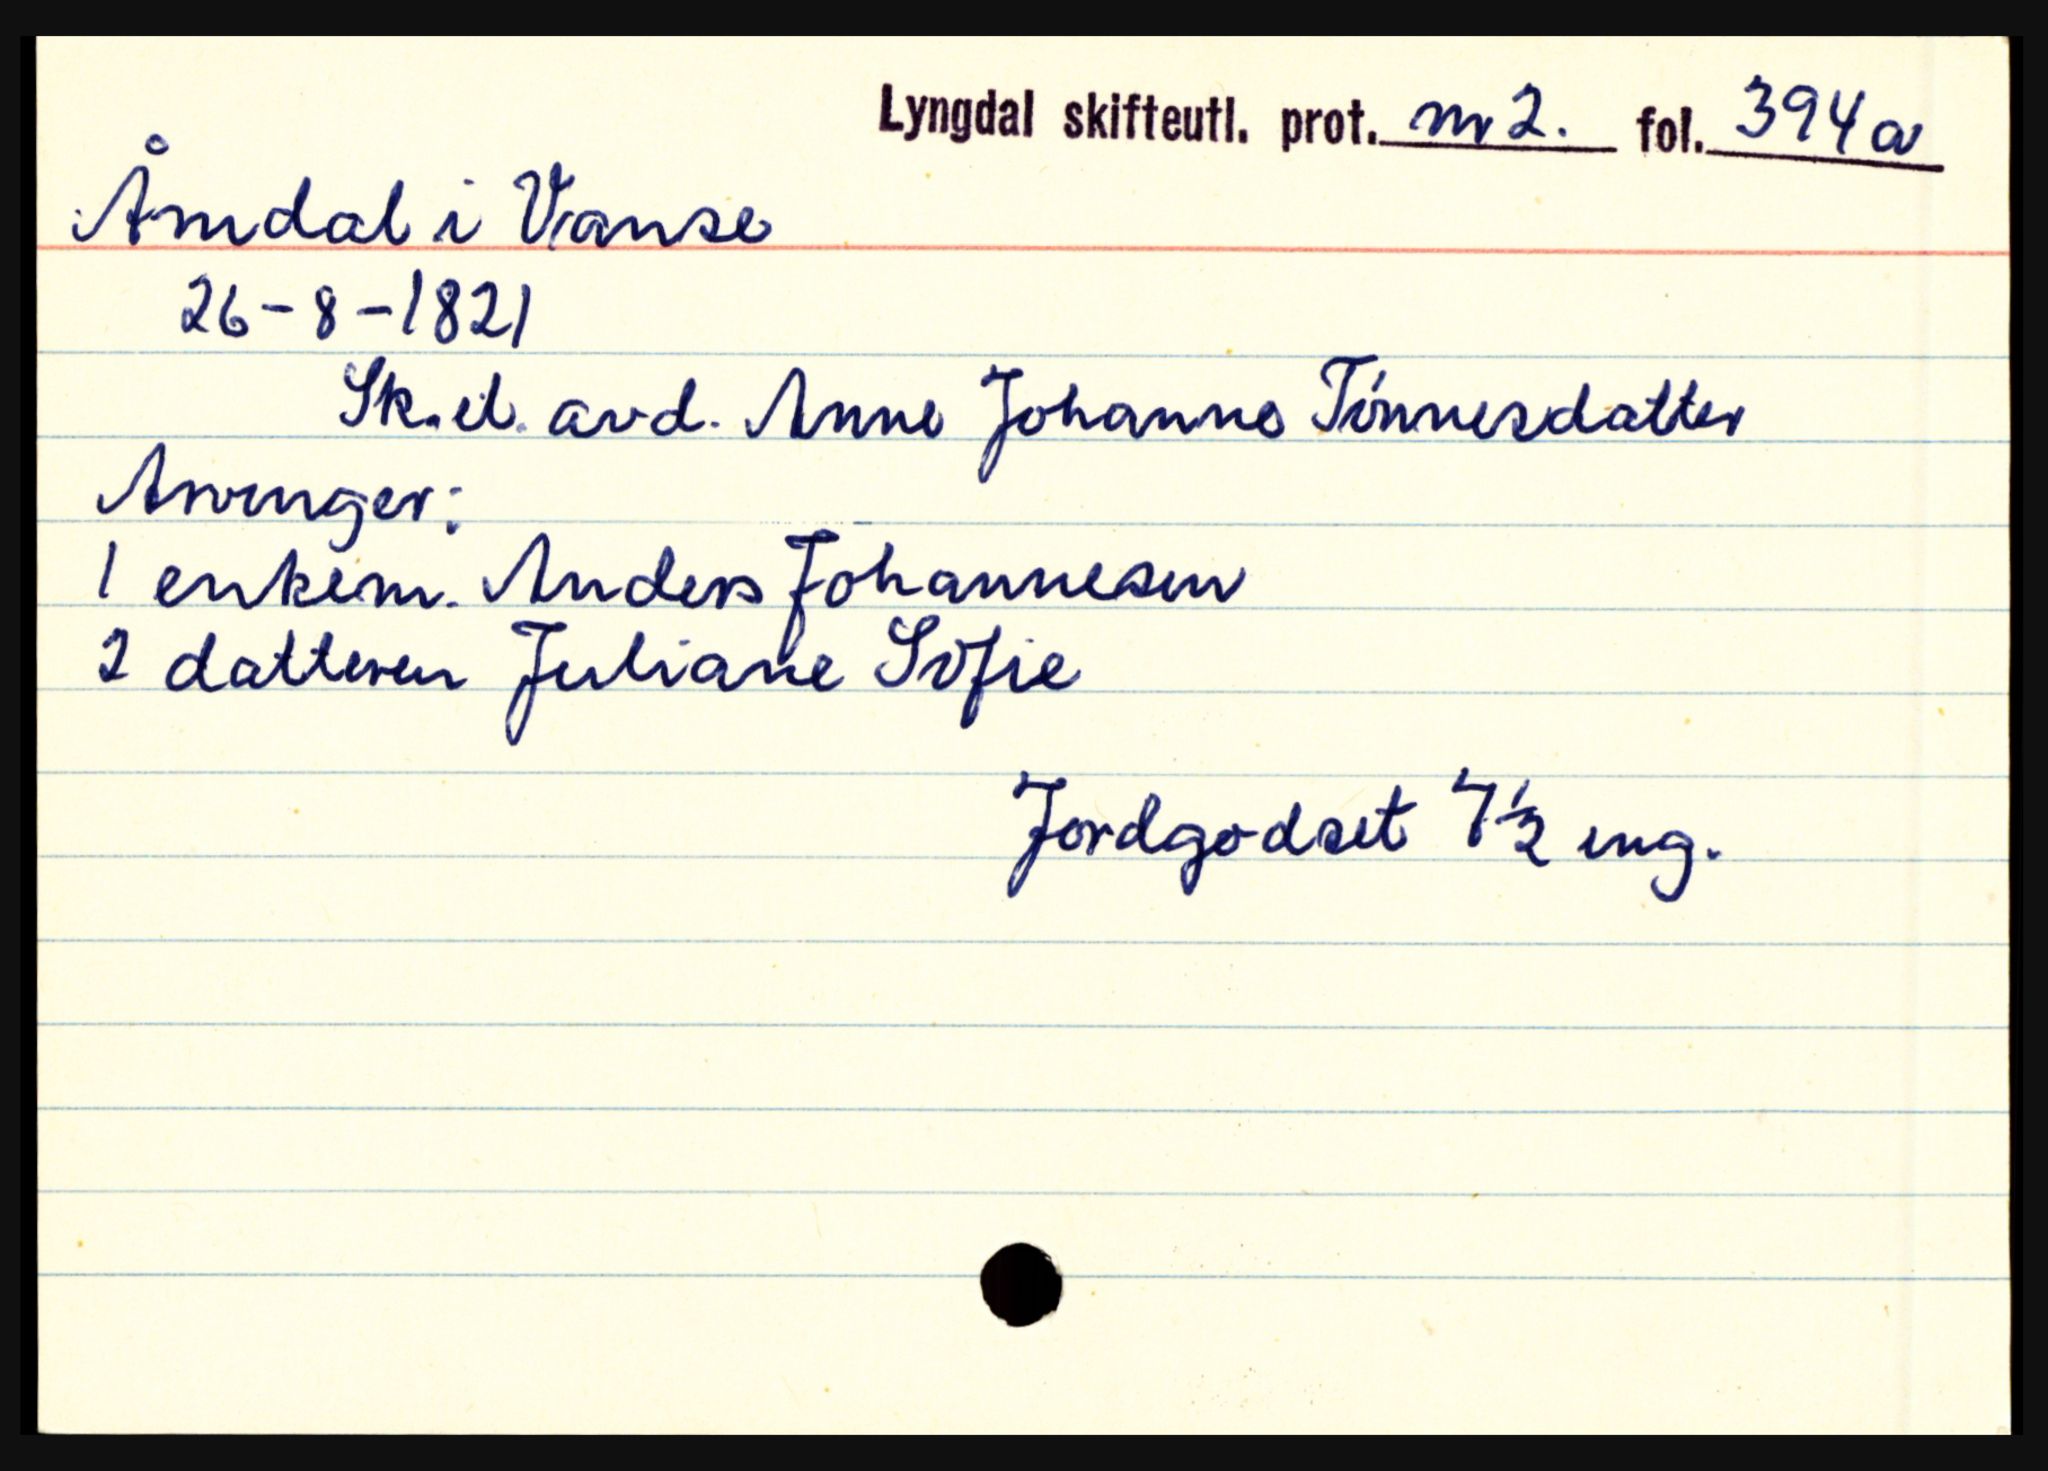 Lyngdal skifteutl. prot. nr 2. fol. 394a
Åmdal i Vanse
26-8-1821
Sk.el. avd. Anne Johanne Tønnesdatter
Arvinger:
1 enkem. Anders Johannesen
2 datteren Juliane Sofie
Jordgodset 7½ eng.